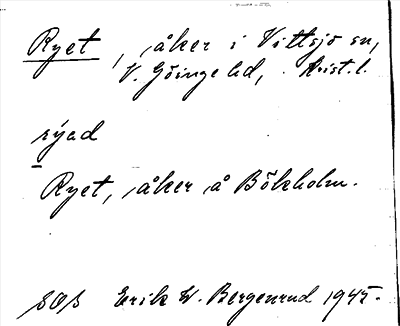 Ryet, åker i Vittsjö sn,
V. Göinge hd, Krist. l.
rýad
Ryet, åker å Bökholm.
SOS Erik W. Bergenrud 1945.